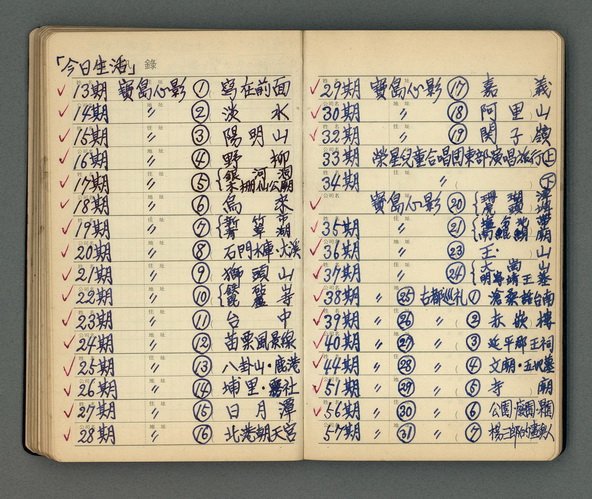 「今日生活」 錄
13期 寶島心影 ① 寫在前面
14期 〃 ② 淡水
15期 〃 ③ 陽明山
16期 〃 ④ 野柳
17期 〃 ⑤ 銀河洞 木柵仙公廟
18期 〃 ⑥ 烏來
19期 〃 ⑦
20期 〃 ⑧ 石門水庫·大溪
21期 〃 ⑨ 獅頭山
22期 〃 ⑩
23期 〃 ⑪ 台中
24期 〃 ⑫ 苗栗風景線
25期 〃 ⑬ 八卦山·鹿港
26期 〃 ⑭ 埔里·霧社
27期 〃 ⑮ 日月潭
28期 〃 ⑯ 北港朝天宮
29期 寶島心影 ⑰ 嘉義
30期 〃 ⑱ 阿里山
32期 〃 ⑲ 関子嶺
33期 榮星兒童合唱団東部演唱旅行上
34期 〃 下
寶島心影 ⑳
35期 〃 ㉑
36期 〃 ㉓ 玉山
37期 〃 ㉔ 大崗山 明寧靖王墓
38期 〃 ㉕ 古都巡礼 ① 滄桑話台南
39期 〃 ㉖ 〃 ② 赤嵌樓
40期 〃 ㉗ 〃 ③ 延平郡王祠
44期 〃 ㉘ 〃 ④ 文廟·五妃墓
51期 〃 ㉙ 〃 ⑤ 寺廟
56期 〃 ㉚ 〃 ⑥ 公園·庭園
57期 〃 ㉛ 〃 ⑦ 楊三郎的畫